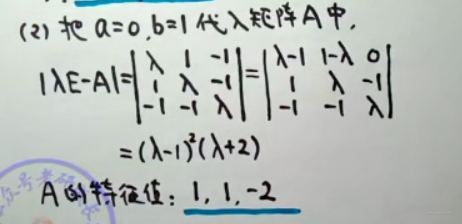 (2) 把 a=0,b=1代入矩阵A中,
|λE-A|=|λ 1 -1; 1 λ -1; -1 -1 λ|=|λ-1 1-λ 0; 1 λ -1; -1 -1 λ|
=(λ-1)²(λ+2)
A的特征值: 1, 1, -2
公众号考研